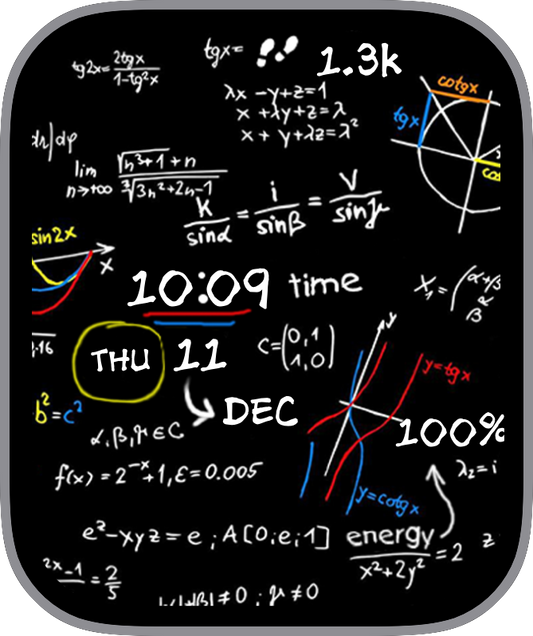 tg2x= 2tgx / 1-tg²x
tgx=
1.3k
λx -y+z=1
x +λy+z=λ
x + y+λz=λ²
cotgx
tgx
lim n→+∞ √n³+1 + n / ∛3n²+2n-1
k/sinα = i/sinβ = V/sinγ
sin2x
x
10:09 time
X₁= (α+β
α
β
THU 11
C= (0,1
1,0)
y
y=tgx
b²=c²
DEC
100%
α,β,γ∈C
λ₂=i
f(x) = 2⁻ˣ+1, ε=0.005
y=cotgx
e²-xyz=e ; A[0;e;1]
energy / x²+2y² =2
z
2x-1 = 2/5
≠0 ; γ ≠0